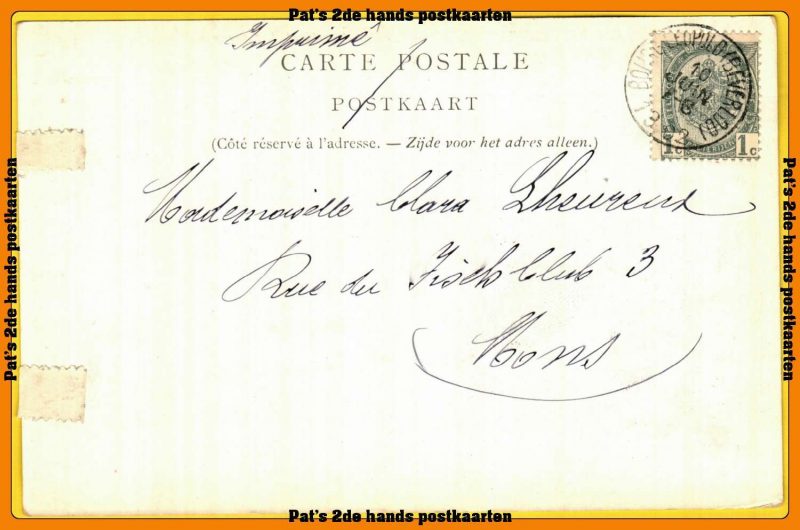 Pat's 2de hands postkaarten
Imprimé
CARTE POSTALE
POSTKAART
(Côté réservé à l'adresse. — Zijde voor het adres alleen.)
Mademoiselle Clara Lheureux
Rue du Fisch Club 3
Mons
10
JUIN
1c 1c
Pat's 2de hands postkaarten
Pat's 2de hands postkaarten
Pat's 2de hands postkaarten